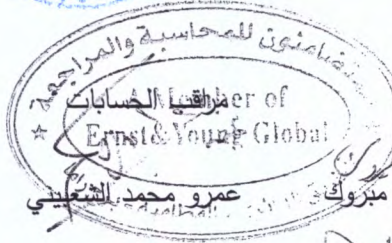 متضامنون للمحاسبة والمراجعة
مراقبا الحسابات
A Member of
Ernst & Young Global
عمرو محمد الشعبيني
مبروك